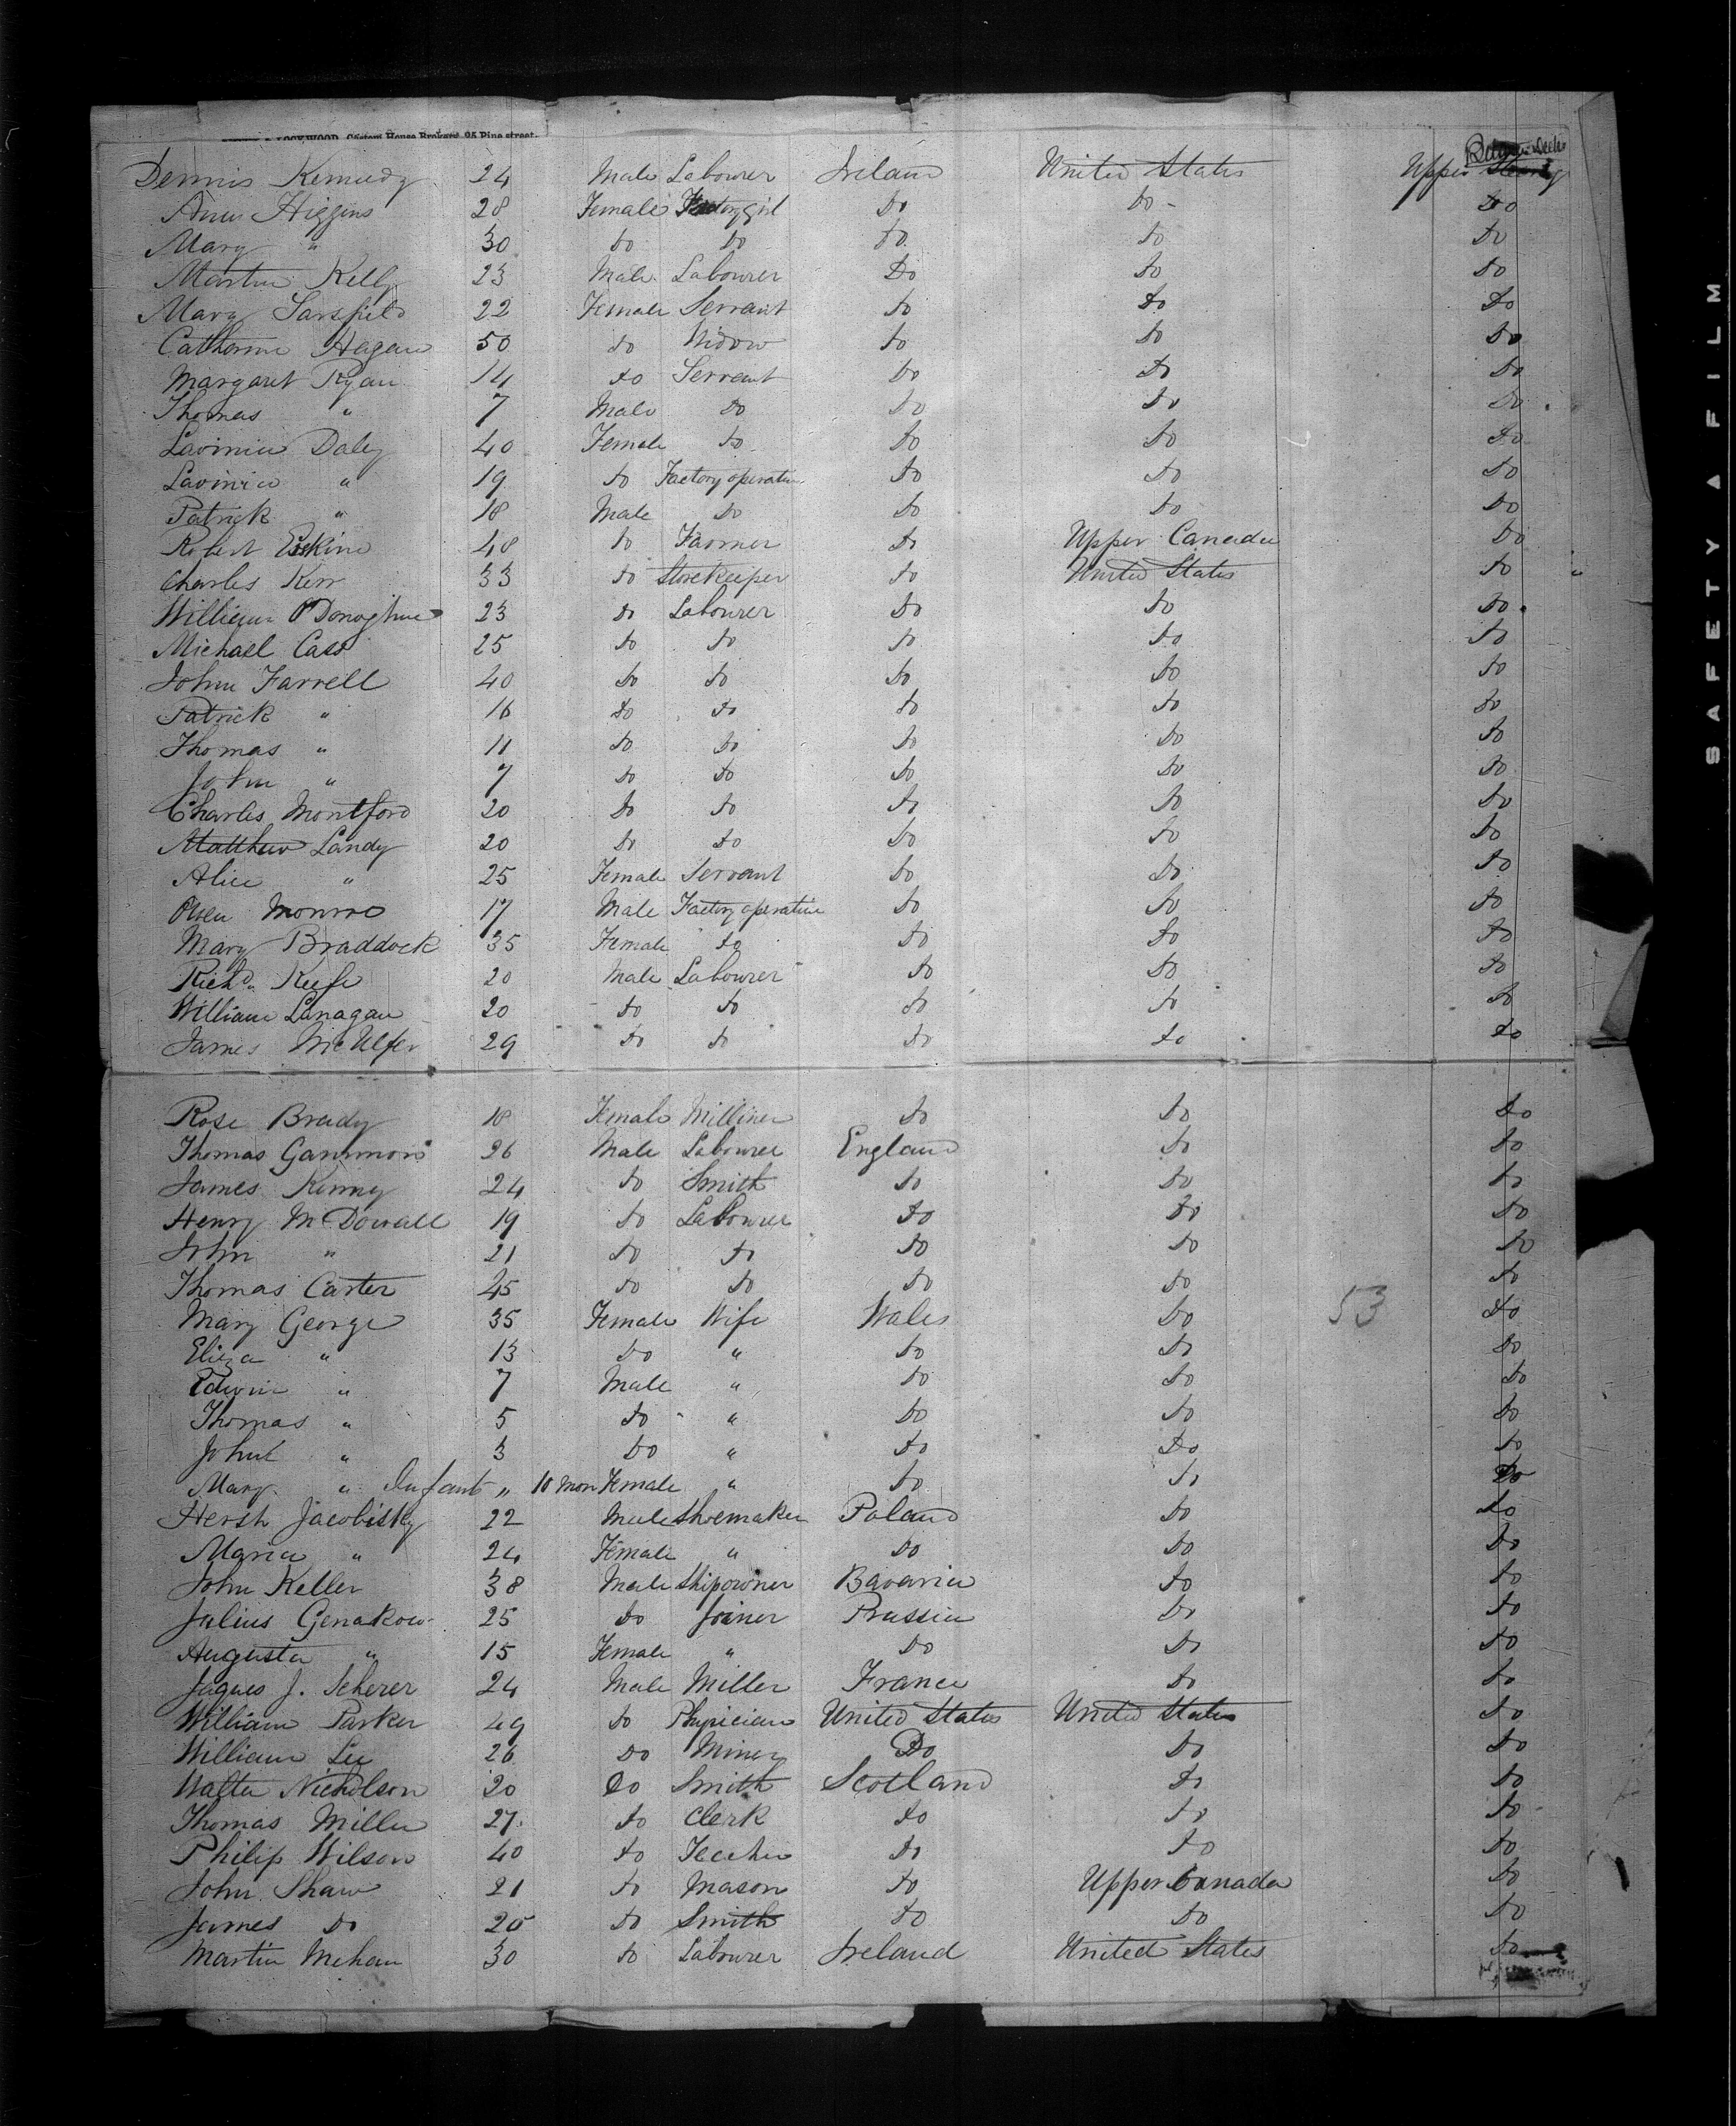 LOCKWOOD, Custom House Brokers, 95 Pine street.
Dennis Kennedy 24 Male Labourer Ireland United States Upper
Between Decks
Ann Higgins 28 Female Factory girl Do Do Do
Mary " 30 Do Do Do Do Do
Martin Kelly 23 Male Labourer Do Do Do
Mary Sarsfield 22 Female Servant Do Do Do
Catherine Hagan 50 Do Widow Do Do Do
Margaret Ryan 14 Do Servant Do Do Do
Thomas " 7 Male Do Do Do Do
Lavinia Daley 40 Female Do Do Do Do
Lavinia " 19 Do Factory operative Do Do Do
Patrick " 18 Male Do Do Do Do
Robert Erskine 48 Do Farmer Do Upper Canada Do
Charles Kerr 33 Do Storekeeper Do United States Do "
William O'Donoghue 23 Do Labourer Do Do Do
Michael Cass 25 Do Do Do Do Do
John Farrell 40 Do Do Do Do Do
Patrick " 16 Do Do Do Do Do
Thomas " 11 Do Do Do Do Do
John " 7 Do Do Do Do Do
Charles Montford 20 Do Do Do Do Do
Matthew Landy 20 Do Do Do Do Do
Alice " 25 Female Servant Do Do Do
Monroe 17 Male Factory operative Do Do Do
Mary Braddock 35 Female Do Do Do Do
Richd. Keefe 20 Male Labourer Do Do Do
William Lanagan 20 Do Do Do Do Do
James 29 Do Do Do Do Do
Rose Brady 18 Female Milliner Do Do Do
Thomas Gammons 26 Male Labourer England Do Do
James Kinny 24 Do Smith Do Do Do
Henry McDowall 19 Do Labourer Do Do Do
John " 21 Do Do Do Do Do
Thomas Carter 45 Do Do Do Do Do
Mary George 35 Female Wife Wales Do 53 Do
Eliza " 13 Do " Do Do Do
Edwin " 7 Male " Do Do Do
Thomas " 5 Do " Do Do Do
John " 3 Do " Do Do Do
Mary " Infant " 10 Mon Female " Do Do Do
Hersh Jacobisky 22 Male Shoemaker Poland Do Do
Maria " 24 Female " Do Do Do
John Keller 38 Male Shipowner Bavaria Do Do
Julius Genakow 25 Do Joiner Prussia Do Do
Augusta " 15 Female " Do Do Do
Jaques J. Scherer 24 Male Miller France Do Do
William Parker 49 Do Physician United States United States Do
William Lee 26 Do Miner Do Do Do
Walter Nicholson 20 Do Smith Scotland Do Do
Thomas Miller 27 Do Clerk Do Do Do
Philip Wilson 40 Do Teacher Do Do Do
John Shaw 21 Do Mason Do Upper Canada Do
James Do 25 Do Smith Do Do Do
Martin Mehan 30 Do Labourer Ireland United States Do
SAFETY ▲ FILM